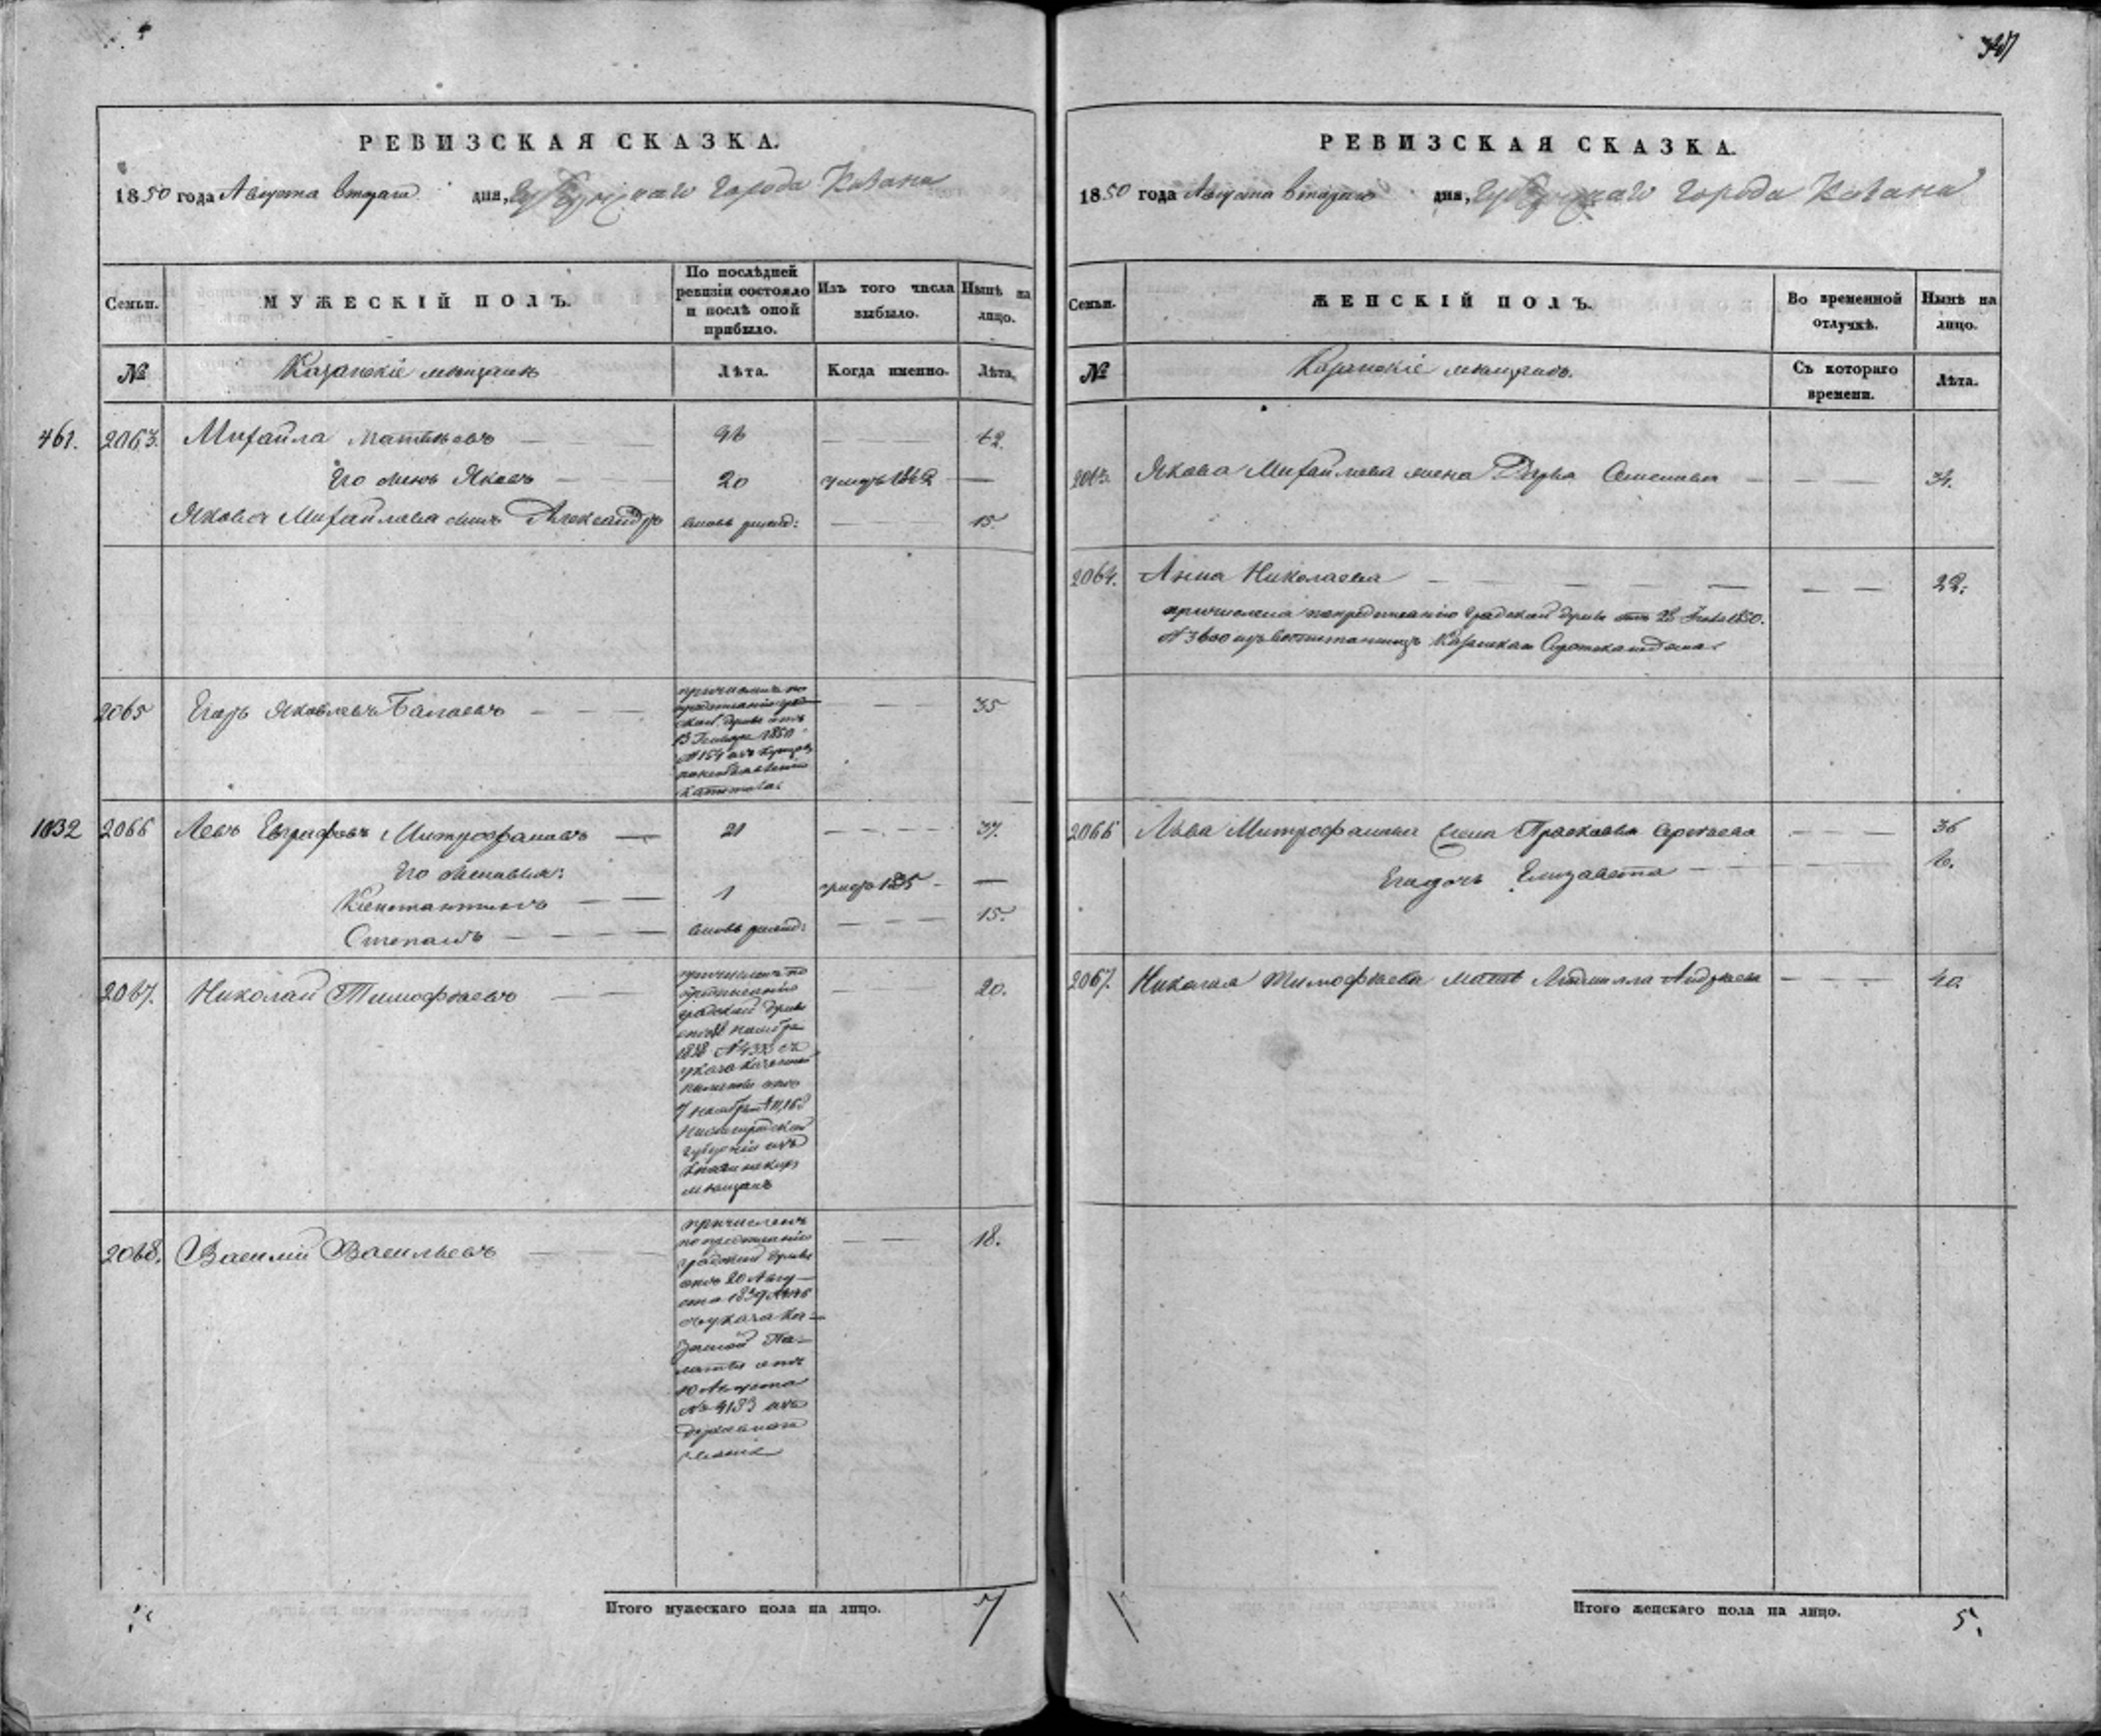 347
РЕВИЗСКАЯ СКАЗКА.
1850 года Августа втораго дня, Губернскаго города Казани
Семьи.
МУЖЕСКІЙ ПОЛЪ.
По послѣдней ревизіи состояло и послѣ оной прибыло.
Изъ того числа выбыло.
Нынѣ на лицо.
№
Казанскіе мѣщане
Лѣта.
Когда именно.
Лѣта.
461. 2063. Михайла Матвѣевъ — 46 — 62.
Его сынъ Яковъ — 20 умеръ 1842 —
Якова Михайлова сынъ Александръ вновь рожд: — 15.
2065 Егоръ Яковлевъ — 35
причисленъ по
предписанію град
ской думы отъ
13 Генваря 1850
№ 154 изъ купцовъ
капитала
1032 2066 Левъ Евграфовъ Митрофановъ — 21 — 37.
Его сыновья:
Константинъ — 1 умеръ 1835 —
Степанъ — вновь рожд: — 15.
2067. Николай Тимофѣевъ — 20.
причисленъ по
предписанію
градской думы
ноября
1838 № съ
указа казенной
палаты отъ
7 ноября
Нижегородской
губерніи изъ
мѣщанъ
2068. Василій Васильевъ — 18.
причисленъ
по предписанію
градской думы
отъ 20 Авгу—
ста 1839 №
съ указа Ка—
зенной Па—
латы отъ
10 Августа
№ 4133 изъ
Итого мужескаго пола на лицо. 7
РЕВИЗСКАЯ СКАЗКА.
1850 года Августа втораго дня, Губернскаго города Казани
Семьи.
ЖЕНСКІЙ ПОЛЪ.
Во временной отлучкѣ.
Нынѣ на лицо.
№
Казанскіе мѣщане.
Съ котораго времени.
Лѣта.
2063. Якова Михайлова жена Дарья Семенова — 34.
2064. Анна Николаева — 22.
причислена по предписанію Градской думы отъ 28 1850.
№ 3600 изъ воспитанницъ Казанскаго Сиротскаго дома.
2066 Льва Митрофанова жена Прасковья Сергѣева — 36
Его дочь Елизавета — 6.
2067. Николая Тимофѣева мать Людмилла Андреева — 40.
Итого женскаго пола на лицо. 5.